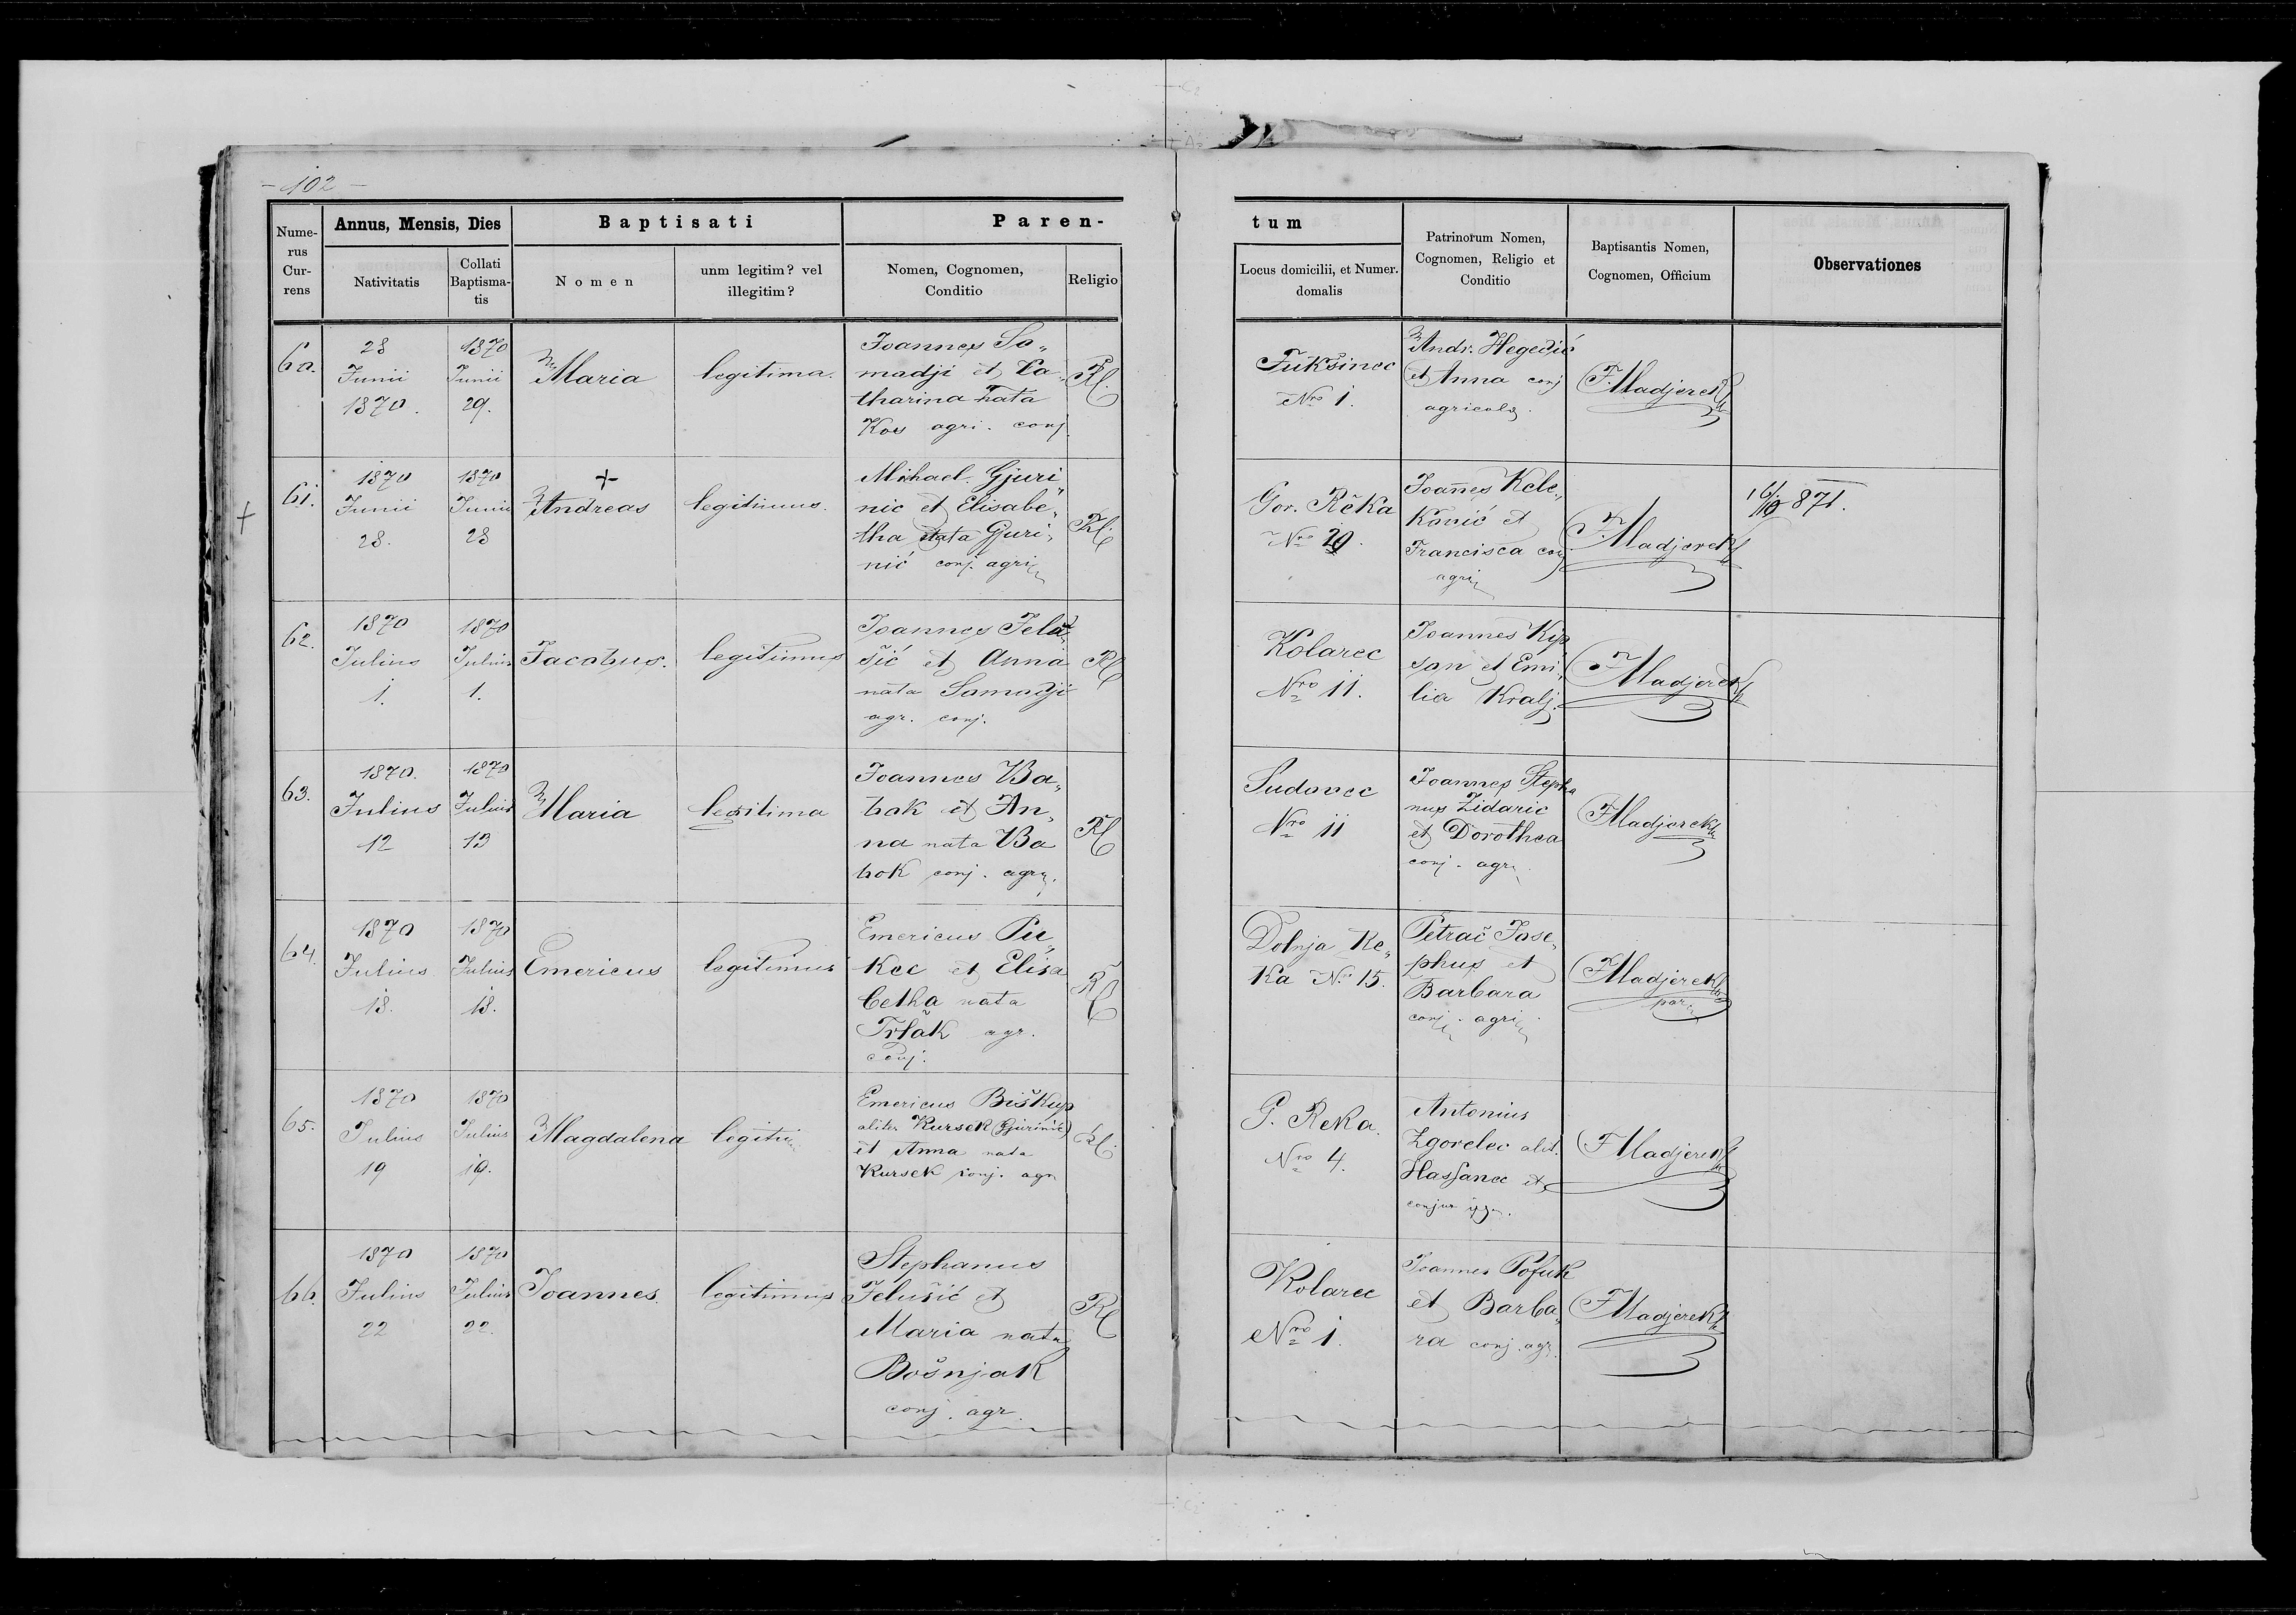 - 102 -
Nume-
rus
Cur-
rens
Annus, Mensis, Dies
Nativitatis
Collati
Baptisma-
tis
Baptisati
Nomen
unm legitim? vel
illegitim?
Paren-
Nomen, Cognomen,
Conditio
Religio
tum
Locus domicilii, et Numer.
domalis
Patrinorum Nomen,
Cognomen, Religio et
Conditio
Baptisantis Nomen,
Cognomen, Officium
Observationes
60.
28
Junii
1870.
1870
Junii
29.
Maria
legitima.
Joannes Sa„
madji et Ca„
tharina nata
Kos agri. conj.
RC.
Fukšinec
Nro 1.
Andr. Hegedić
et Anna conj
agricolæ.
F. Madjerek
61.
1870
Junii
28.
1870
Junii
28
+
Andreas
legitimus.
Mihael. Gjuri„
nic et Elisabe„
tha nata Gjuri„
nić conj. agri
RC.
Gor. Rěka
Nro 29.
Joañes Kele„
Konić et
Francisca conj.
agri
F. Madjerek
16/10 871.
+
62.
1870
Julius
1.
1870
Julius
1.
Jacobus.
legitimus
Joannes Jela„
šić et Anna
nata Samadji
agr. conj.
RC
Kolarec
Nro 11.
Joannes Kip
san et Emi„
lia Kralj.
F. Madjerek
63.
1870.
Julius
12
1870
Julius
13
Maria
legitima
Joannes Ba„
bak et An„
na nata Ba
bok conj. agr.
RC
Sudovec
Nro 11
Joannes Stepha
nus Zidaric
et Dorothea
conj. agr.
F. Madjerek
64.
1870
Julius
18.
1870
Julius
18.
Emericus
legitimus
Emericus Pu„
Kec et Elisa
betha nata
Tršak agr.
conj.
RC
Dolnja Re„
Ka No 15.
Petrač Jose„
phus et
Barbara
conj. agri
F. Madjerek
par.
65.
1870
Julius
19
1870
Julius
19.
Magdalena
legitim
Emericus Biškup
aliter Kursek (Gjurinić)
et Anna nata
Kursek conj. agr
RC.
G. Reka.
Nro 4.
Antonius
Zgorelec alit.
Hassanec et
F. Madjerek
66.
1870
Julius
22
1870
Julius
22.
Joannes.
legitimus
Stephanus
Jelušić et
Maria nata
Bošnjak
conj. agr.
RC
Kolarec
Nro 1.
Joannes Pofuk
et Barba„
ra conj. agr.
F. Madjerek